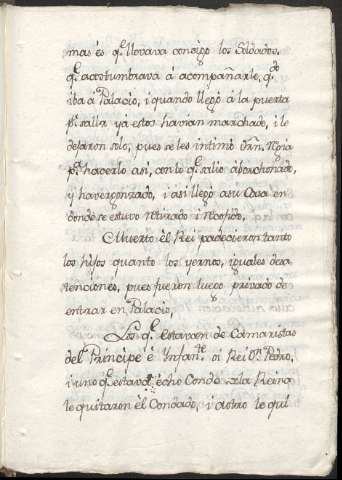 mas és q.e llevava consigo los Soldados,
q.e acostumbrava á acompañarle, q.do
iba a Palacio, i quando llegó á la puerta
p.a salir yá estos havian marchado, i le
dejaron solo, pues se les intimó Orn. Regia
p.a hacerlo asi, con lo q.e salió abochornado,
y havergonzado, i asi llegó a su Casa en
donde se estuvo retirado i recojido.
Muerto el Rei padecieron tanto
los hijos quanto los yernos, iguales desa
tenciones, pues fueron luego privados de
entrar en Palacio,
Los q.e estavan de Camaristas
del Principe é Ynfan.te oi Rei D.n Pedro,
i uno q.e estava echo Conde de la Reina
le quitaron el Condado, i a otro le qui